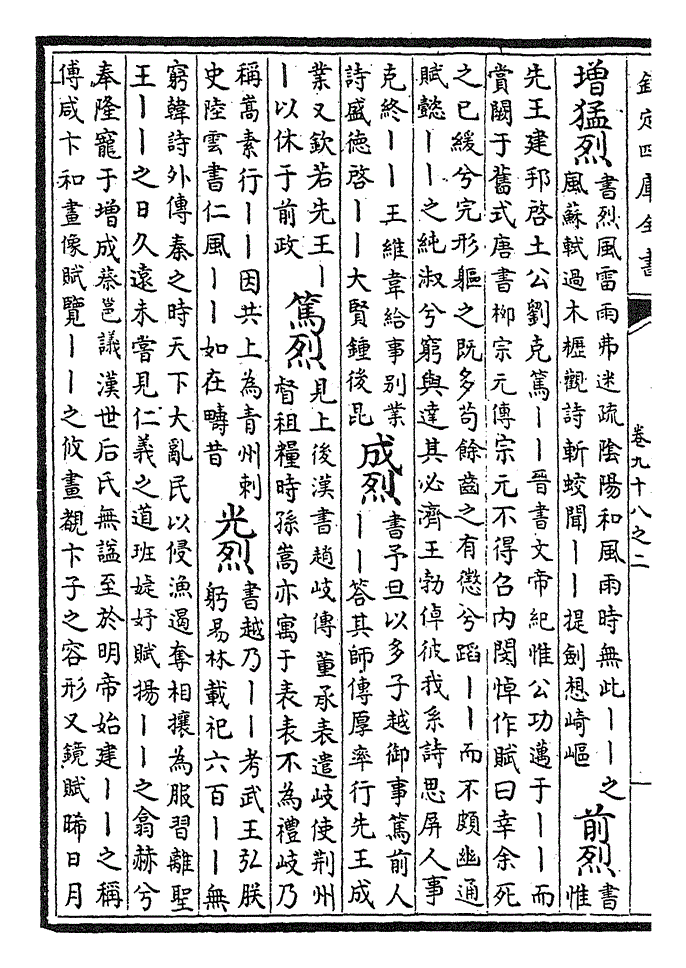 欽定四庫全書
卷九十八之二
增猛烈
書烈風雷雨弗迷疏陰陽和風雨時無此丨丨之
風蘇軾過木櫪觀詩斬蛟聞丨丨提劍想崎嶇
前烈
書
惟
先王建邦啓土公劉克篤丨丨晉書文帝紀惟公功邁于丨丨而
賞闕于舊式唐書柳宗元傳宗元不得召内閔悼作賦曰幸余死
之已緩兮完形軀之既多苟餘齒之有懲兮蹈丨丨而不頗幽通
賦懿丨丨之純淑兮窮與達其必濟王勃倬彼我系詩思屏人事
克終丨丨王維韋給事别業
詩盛德啓丨丨大賢鍾後昆
成烈
書予旦以多子越御事篤前人
丨丨答其師傅厚率行先王成
業又欽若先王丨
丨以休于前政
篤烈
見上後漢書趙岐傳董承表遣岐使荆州
督租糧時孫嵩亦寓于表表不為禮岐乃
稱嵩素行丨丨因共上為青州刺
史陸雲書仁風丨丨如在疇昔
光烈
書越乃丨丨考武王弘朕
躬易林載祀六百丨丨無
窮韓詩外傳秦之時天下大亂民以侵漁遏奪相攘為服習離聖
王丨丨之日久遠未嘗見仁義之道班婕妤賦揚丨丨之翕赫兮
奉隆寵于增成蔡邕議漢世后氏無諡至於明帝始建丨丨之稱
傅咸卞和畫像賦覽丨丨之攸畫覩卞子之容形又鏡賦晞日月